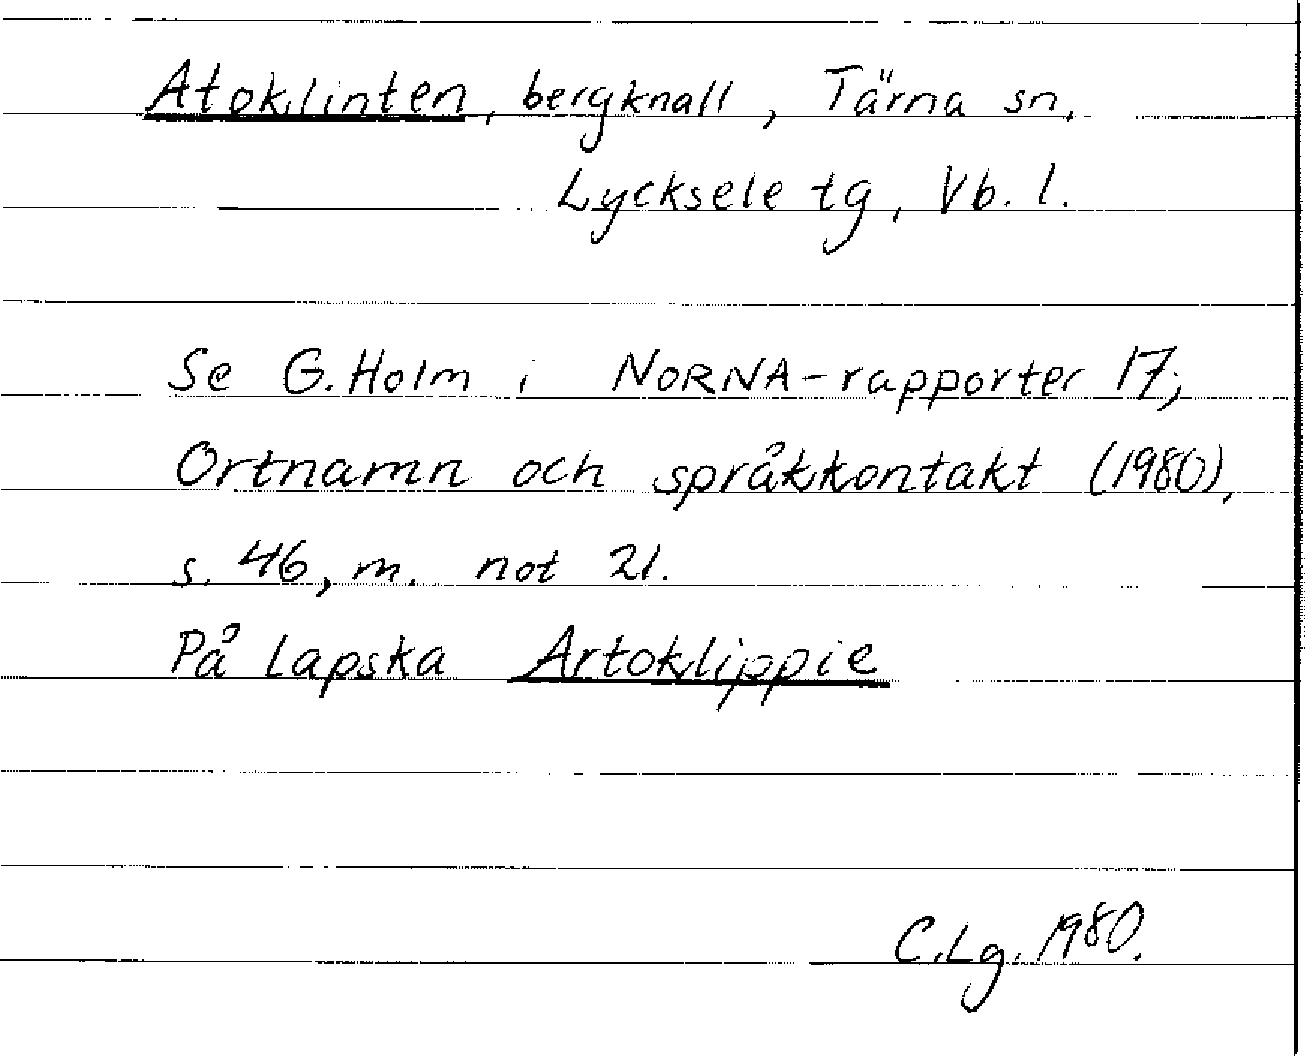 Atoklinten, bergknall, Tärna sn,
Lycksele tg, Vb. l.
Se G. Holm i NORNA-rapporter 17;
Ortnamn och språkkontakt (1980),
s. 46, m. not 21.
På lapska Artoklippie
C.Lg. 1980.